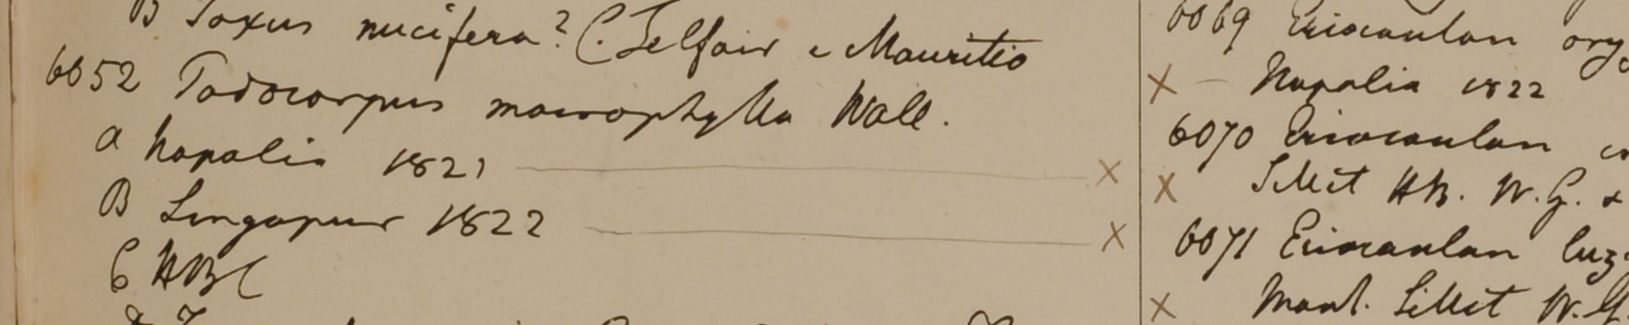 B Taxus nucifera? C. Telfair e Mauritio
6052 Podocarpus macrophylla Wall.
a Napalia 1821 X
B Singapur 1822 X
C HBC
6069 Eriocaulon ory
X — Napalia 1822
6070 Eriocaulon
X Sillet HB. W.G. &
6071 Eriocaulon luz
X Mont. Sillet W.G.